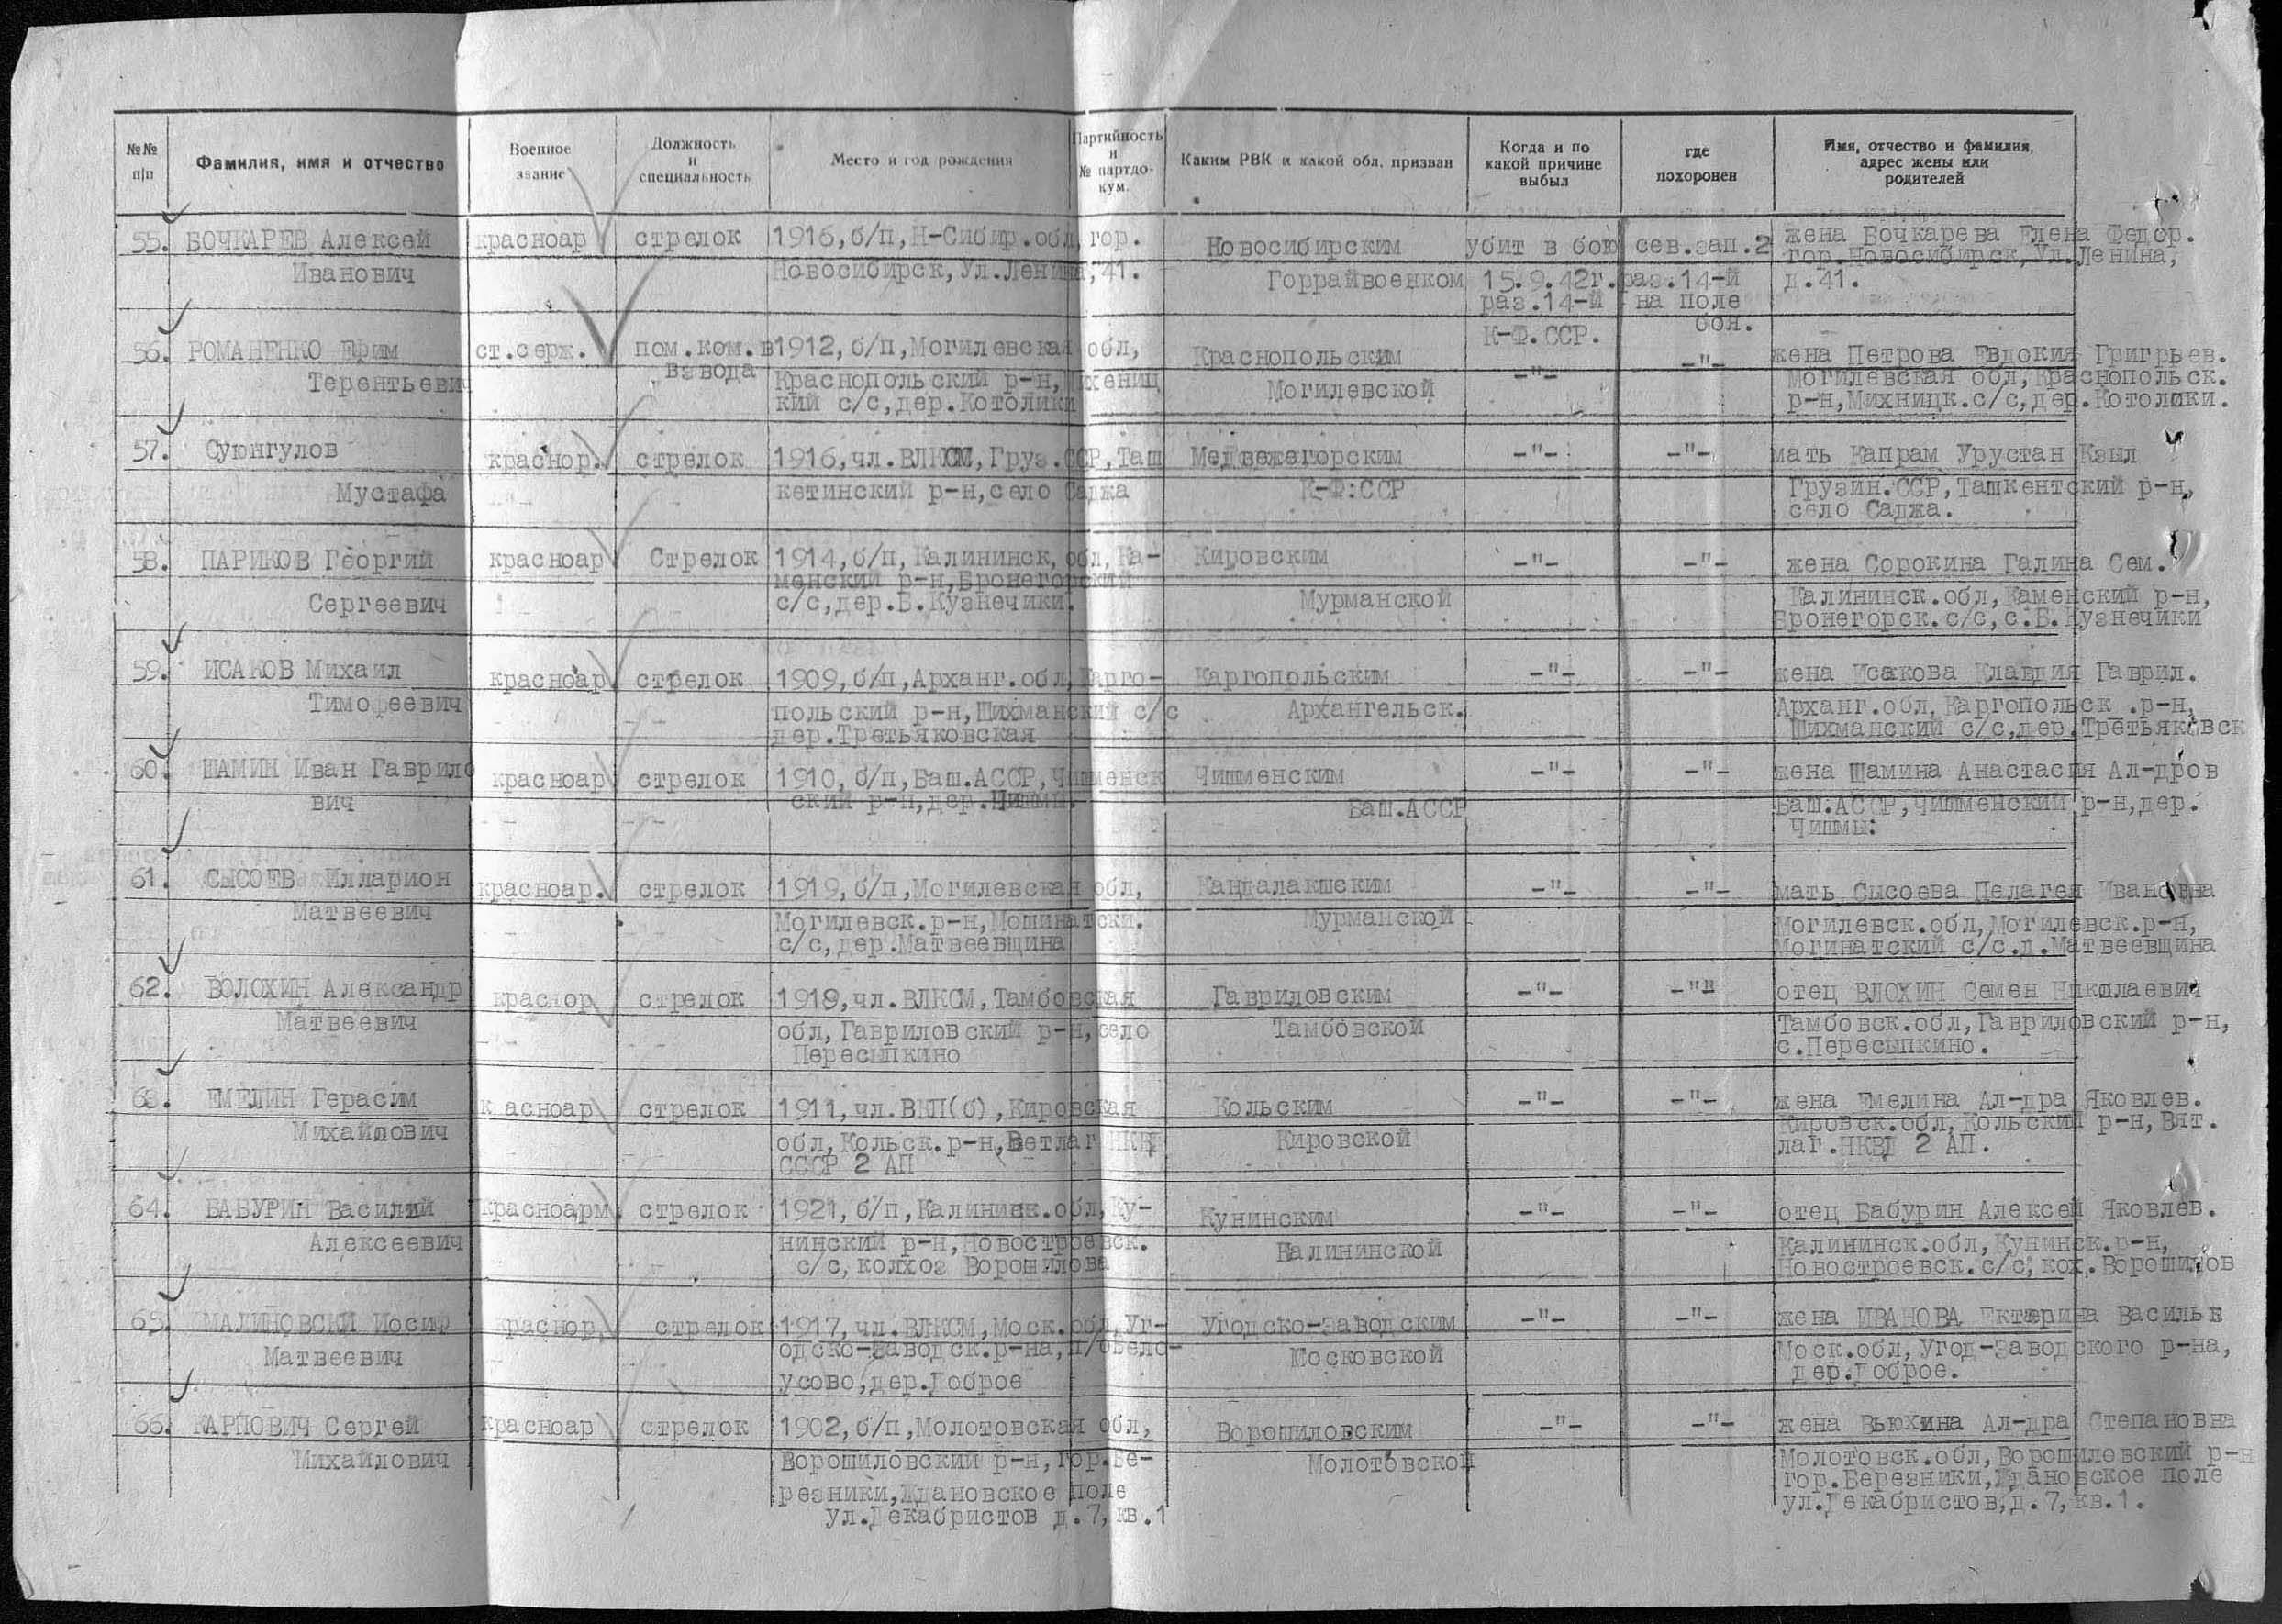 №№ п/п
Фамилия, имя и отчество
Военное звание
Должность и специальность
Место и год рождения
Партийность и № партдокум.
Каким РВК и какой обл. призван
Когда и по какой причине выбыл
где похоронен
Имя, отчество и фамилия, адрес жены или родителей
55. БОЧКАРЕВ Алексей красноар стрелок 1916,б/п,Н-Сибир.обл,гор. Новосибирским убит в бою сев.зап.2 жена Бочкарева Елена Федор.
Иванович Новосибирск,Ул.Ленина,41. Горрайвоенком 15.9.42г. раз.14-й гор.Новосибирск,Ул.Ленина,
раз.14-й на поле д.41.
К-Ф.ССР. боя.
56. РОМАНЕНКО Ефим ст.серж. пом.ком.в 1912,б/п,Могилевская обл, Краснопольским -"- -"- жена Петрова Евдокия Григрьев.
Терентьевич взвода Краснопольский р-н, Могилевской Могилевская обл,Краснопольск.
кий с/с,дер.Котолики р-н,Михницк.с/с,дер.Котолики.
57. Суюнгулов краснор. стрелок 1916,чл.ВЛКСМ,Груз.ССР,Таш Медвежегорским -"- -"- мать Капрам Урустан Кзыл
Мустафа кетинский р-н,село Саджа К-Ф:ССР Грузин.ССР,Ташкентский р-н,
село Саджа.
58. ПАРИКОВ Георгий красноар Стрелок 1914,б/п,Калининск,обл,Ка- Кировским -"- -"- жена Сорокина Галина Сем.
менский р-н,Бронегорский
Сергеевич с/с,дер.Б.Кузнечики. Мурманской Калининск.обл,Каменский р-н,
Бронегорск.с/с,с.Б.Кузнечики
59. ИСАКОВ Михаил красноар стрелок 1909,б/п,Арханг.обл,Карго- Каргопольским -"- -"- жена Исакова Клавдия Гаврил.
Тимофеевич польский р-н,Шихманский с/с Архангельск. Арханг.обл,Каргопольск.р-н,
дер.Третьяковская Шихманский с/с,дер.Третьяковск
60. ШАМИН Иван Гаврило красноар стрелок 1910,б/п,Баш.АССР,Чишменск Чишменским -"- -"- жена Шамина Анастасия Ал-дров
вич ский р-н,дер.Чишмы. Баш.АССР Баш.АССР,Чишменский р-н,дер.
Чишмы:
61. СЫСОЕВ Илларион красноар. стрелок 1919,б/п,Могилевская обл, Кандалакшским -"- -"- мать Сысоева Пелагея Ивановна
Матвеевич Могилевск.р-н,Мошинатски. Мурманской Могилевск.обл,Могилевск.р-н,
с/с,дер.Матвеевщина Могинатский с/с.д.Матвеевщина
62. ВОЛОХИН Александр краснор стрелок 1918,чл.ВЛКСМ,Тамбовская Гавриловским -"- -"" отец ВЛОХИН Семен Николаевич
Матвеевич обл,Гавриловский р-н,село Тамбовской Тамбовск.обл,Гавриловский р-н,
Пересыпкино с.Пересыпкино.
63. ЕМЕЛИН Герасим к асноар стрелок 1911,чл.ВКП(б),Кировская Кольским -"- -"- жена Емелина Ал-дра Яковлев.
Михайлович обл,Кольск.р-н,Ветлаг НКВД Кировской Кировск.обл,Кольский р-н,Вят.
СССР 2 АП лаг.НКВД 2 АП.
64. БАБУРИН Василий Красноарм стрелок 1921,б/п,Калининск.обл,Ку- Кунинским -"- -"- отец Бабурин Алексей Яковлев.
Алексеевич нинский р-н,Новостроевск. Калининской Калининск.обл,Кунинск.р-н,
с/с,колхоз Ворошилова Новостроевск.с/с,кох.Ворошилов
65. МАЛИНОВСКИ Иосиф краснор, стрелок 1917,чл.ВЛКСМ,Моск.обл,Уг- Угодско-Заводским -"- -"- жена ИВАНОВА Ектерина Васильв
Матвеевич одско-Заводск.р-на,п/оБело- Московской Моск.обл,Угод-Заводского р-на,
усово,дер.Доброе дер.Доброе.
66. КАРПОВИЧ Сергей красноар стрелок 1902,б/п,Молотовская обл, Ворошиловским -"- -"- жена Вьюхина Ал-дра Степановна
Михайлович Ворошиловский р-н,гор.Бе- Молотовской Молотовск.обл,Ворошиловский р-н
резники,Ждановское поле гор.Березники,Ждановское поле
ул.Декабристов д.7,кв.1 ул.Декабристов,д.7,кв.1.